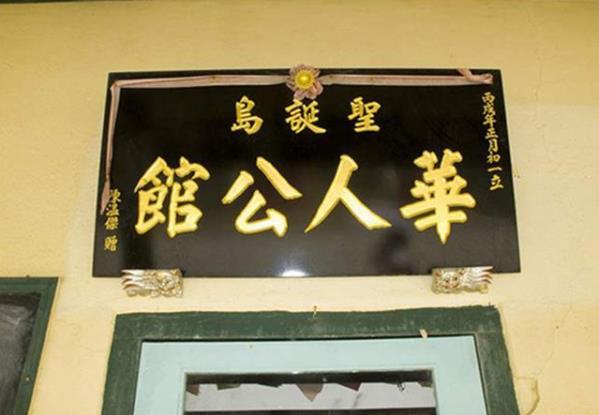 丙戌年正月初一立
聖誕島
華人公館
陳溫傑贈